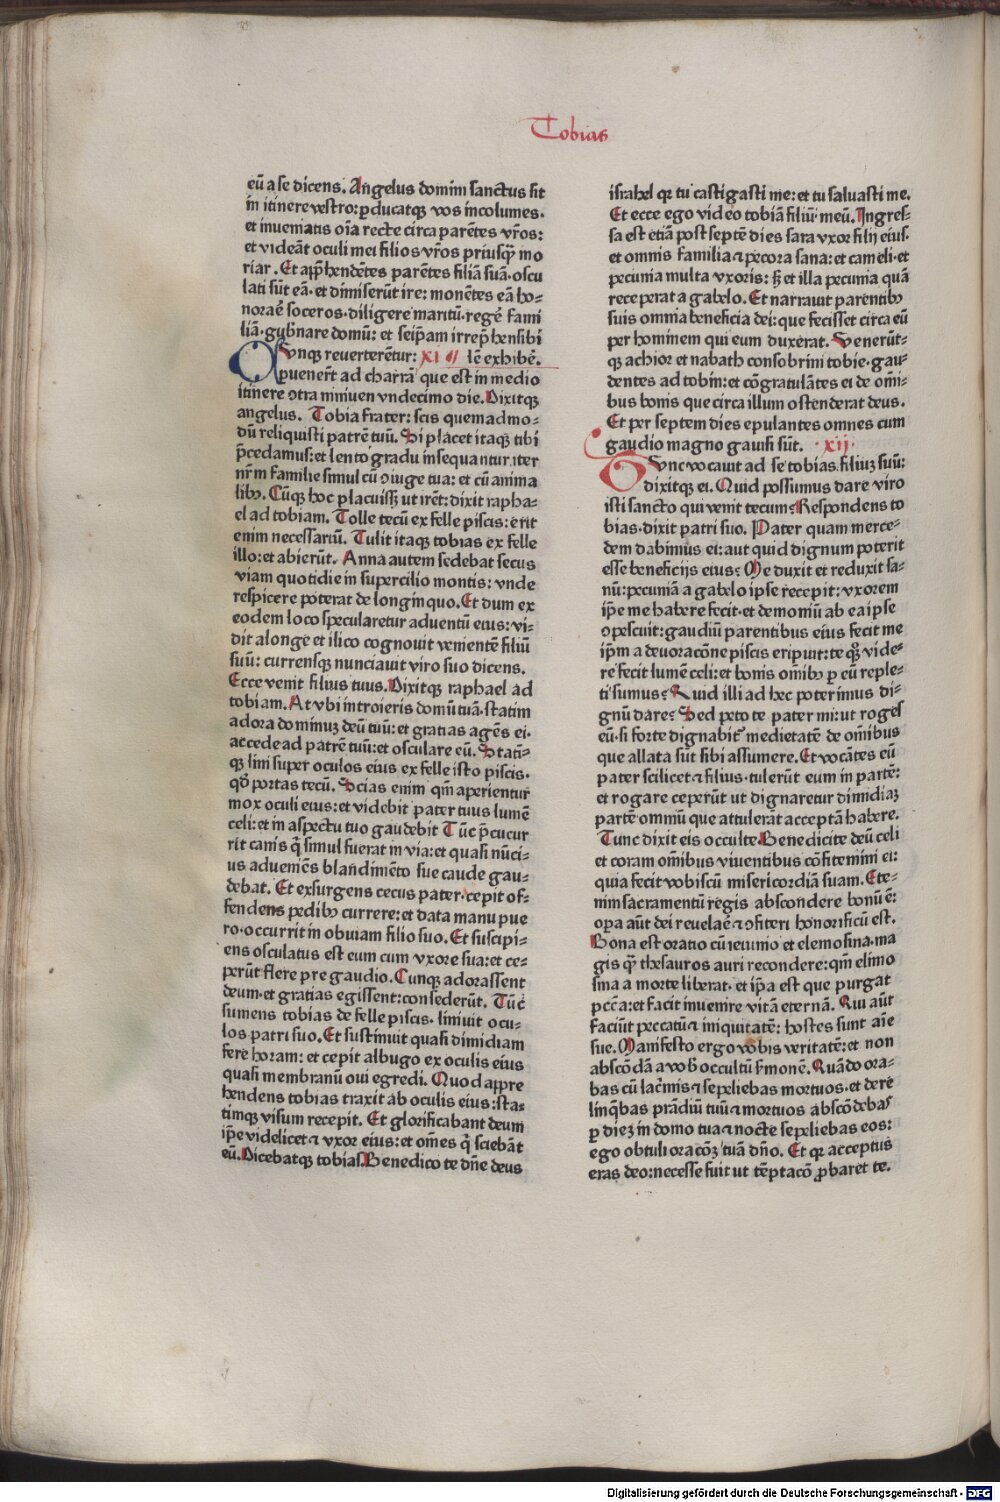 Tobias
eū a se dicens. Angelus domini sanctus sit
in itinere vestro: ꝑducatqꝫ vos incolumes.
et inueniatis oīa recte circa parētes vr̄os:
et videāt oculi mei filios vr̄os priusq̄ȝ mo
riar. Et apꝑhendētes parētes filiā suā. oscu
lati sūt eā. et dimiserūt ire: monētes eā ho-
norare soceros. diligere maritū. regē fami
liā. gub̄nare domū: et seip̄am irrep̄hensibi
Cunqꝫ reuerterētur: XI lē exhibē.
ꝑuener̄t ad charrā que est in medio
itinere ꝯtra niniuen vndecimo die. Dixitqꝫ
angelus. Tobia frater: scis quemadmo-
dū reliquisti patrē tuū. Si placet itaqꝫ tibi
p̄cedamus: et lento gradu insequantur iter
nr̄m familie simul cū ꝯiuge tua: et cū anima
libꝫ. Cūqꝫ hoc placuissꝫ ut irēt: dixit rapha-
el ad tobiam. Tolle tecū ex felle piscis: erit
enim necessariū. Tulit itaqꝫ tobias ex felle
illo: et abierūt. Anna autem sedebat secus
viam quotidie in supercilio montis: vnde
respicere poterat de longinquo. Et dum ex
eodem loco specularetur aduentū eius: vi-
dit alonge et ilico cognouit venientē filiū
suū: currensqꝫ nunciauit viro suo dicens.
Ecce venit filius tuus. Dixitqꝫ raphael ad
tobiam. At vbi introieris domū tuā. statim
adora dominuꝫ deū tuū: et gratias agēs ei.
accede ad patrē tuū: et osculare eū. Statī-
qꝫ lini super oculos eius ex felle isto piscis.
qd̄ portas tecū. Scias enim qm̄ aperientur
mox oculi eius: et videbit pater tuus lumē
celi: et in aspectu tuo gaudebit Tūc p̄cucur
rit canis q̄ simul fuerat in via: et quasi nūci-
us adueniēs blandimēto sue caude gau-
debat. Et exsurgens cecus pater. cepit of-
fendens pedibꝫ currere: et data manu pue
ro. occurrit in obuiam filio suo. Et suscipi-
ens osculatus est eum cum vxore sua: et ce-
perūt flere pre gaudio. Cunqꝫ adorassent
deum. et gratias egissent: consederūt. Tūc
sumens tobias de felle piscis. liniuit ocu-
los patri suo. Et sustinuit quasi dimidiam
fere horam: et cepit albugo ex oculis eius
quasi membranū oui egredi. Quod appre
hendens tobias traxit ab oculis eius: sta-
timqꝫ visum recepit. Et glorificabant deum
ip̄e videlicet ⁊ vxor eius: et om̄es q̄ sciebāt
eū. Dicebatqꝫ tobias. Benedico te dn̄e deus
israhel qꝛ tu castigasti me: et tu saluasti me.
Et ecce ego video tobiā filiū meū. Ingres-
sa est etiā post septē dies sara vxor filij eius.
et omnis familia ⁊ pecora sana: et cameli. et
pecunia multa vxoris: sꝫ et illa pecunia quā
receperat a gabelo. Et narrauit parentibꝫ
suis omnia beneficia dei: que fecisset circa eū
per hominem qui eum duxerat. Venerūt-
qꝫ achior et nabath consobrini tobie. gau-
dentes ad tobin: et cōgratulātes ei de om̄i-
bus bonis que circa illum ostenderat deus.
Et per septem dies epulantes omnes cum
gaudio magno gauisi sūt. .xij.
Tvnc vocauit ad se tobias filiuꝫ suū:
dixitqꝫ ei. Quid possumus dare viro
isti sancto qui venit tecum? Respondens to
bias. dixit patri suo. Pater quam merce-
dem dabimus ei: aut quid dignum poterit
esse beneficijs eius? Me duxit et reduxit sa-
nū: pecuniā a gabelo ipse recepit: vxorem
ip̄e me habere fecit. et demoniū ab ea ipse
ꝯpescuit: gaudiū parentibus eius fecit me
ip̄m a deuoracōne piscis eripuit: te qꝫ vide-
re fecit lumē celi: et bonis om̄ibꝫ ꝑ eū reple-
ti sumus? Quid illi ad hec poterimus di-
gnū dare? Sed peto te pater mi: ut roges
eū. si forte dignabit᷑ medietatē de om̄ibus
que allata sūt sibi assumere. Et vocātes eū
pater scilicet ⁊ filius. tulerūt eum in partē:
et rogare ceperūt ut dignaretur dimidiaꝫ
partē omniū que attulerāt acceptā habere.
Tunc dixit eis occulte. Benedicite deū celi
et coram om̄ibus viuentibus cōfitemini ei:
quia fecit vobiscū misericordiā suam. Ete-
nim sacramentū regis abscondere bonū ē:
oꝑa aūt dei reuelare ⁊ ꝯfiteri honorificū est.
Bona est oratio cū ieiunio et elemosina. ma
gis qꝫ thesauros auri recondere: qm̄ elimo
sina a morte liberat. et ip̄a est que purgat
pcc̄a: et facit inuenire vitā eternā. Qui aūt
faciūt peccatū ⁊ iniquitatē: hostes sunt aīe
sue. Manifesto ergo vobis veritatē: et non
abscōdā a vob̄ occultū s̄monē. Quādo ora-
bas cū lac̄mis ⁊ sepeliebas mortuos. et dere
linq̄bas prādiū tuū ⁊ mortuos abscōdebas
ꝑ dieꝫ in domo tua ⁊ nocte sepeliebas eos:
ego obtuli oracōꝫ tuā dn̄o. Et qꝛ acceptus
eras deo: necesse fuit ut tēptacō ꝓbaret te.
Digitalisierung gefördert durch die Deutsche Forschungsgemeinschaft - DFG